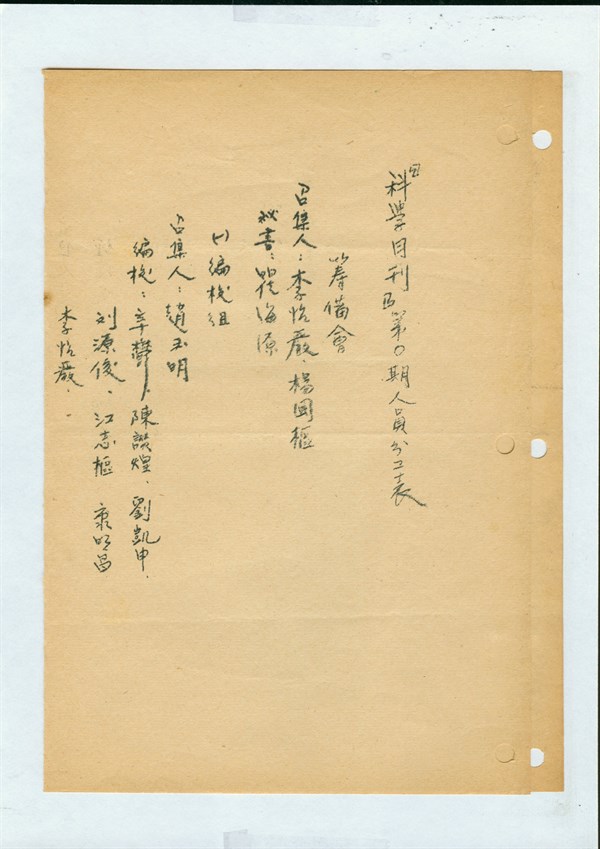 科學月刊第0期人員分工表
籌備會
召集人：李怡嚴、楊國樞
秘書：瞿海源
(一)編校組
召集人：趙玉明
編校：辛鬱、陳諁煌、劉凱申、
刘源俊、江志樞 康明昌
李怡嚴、